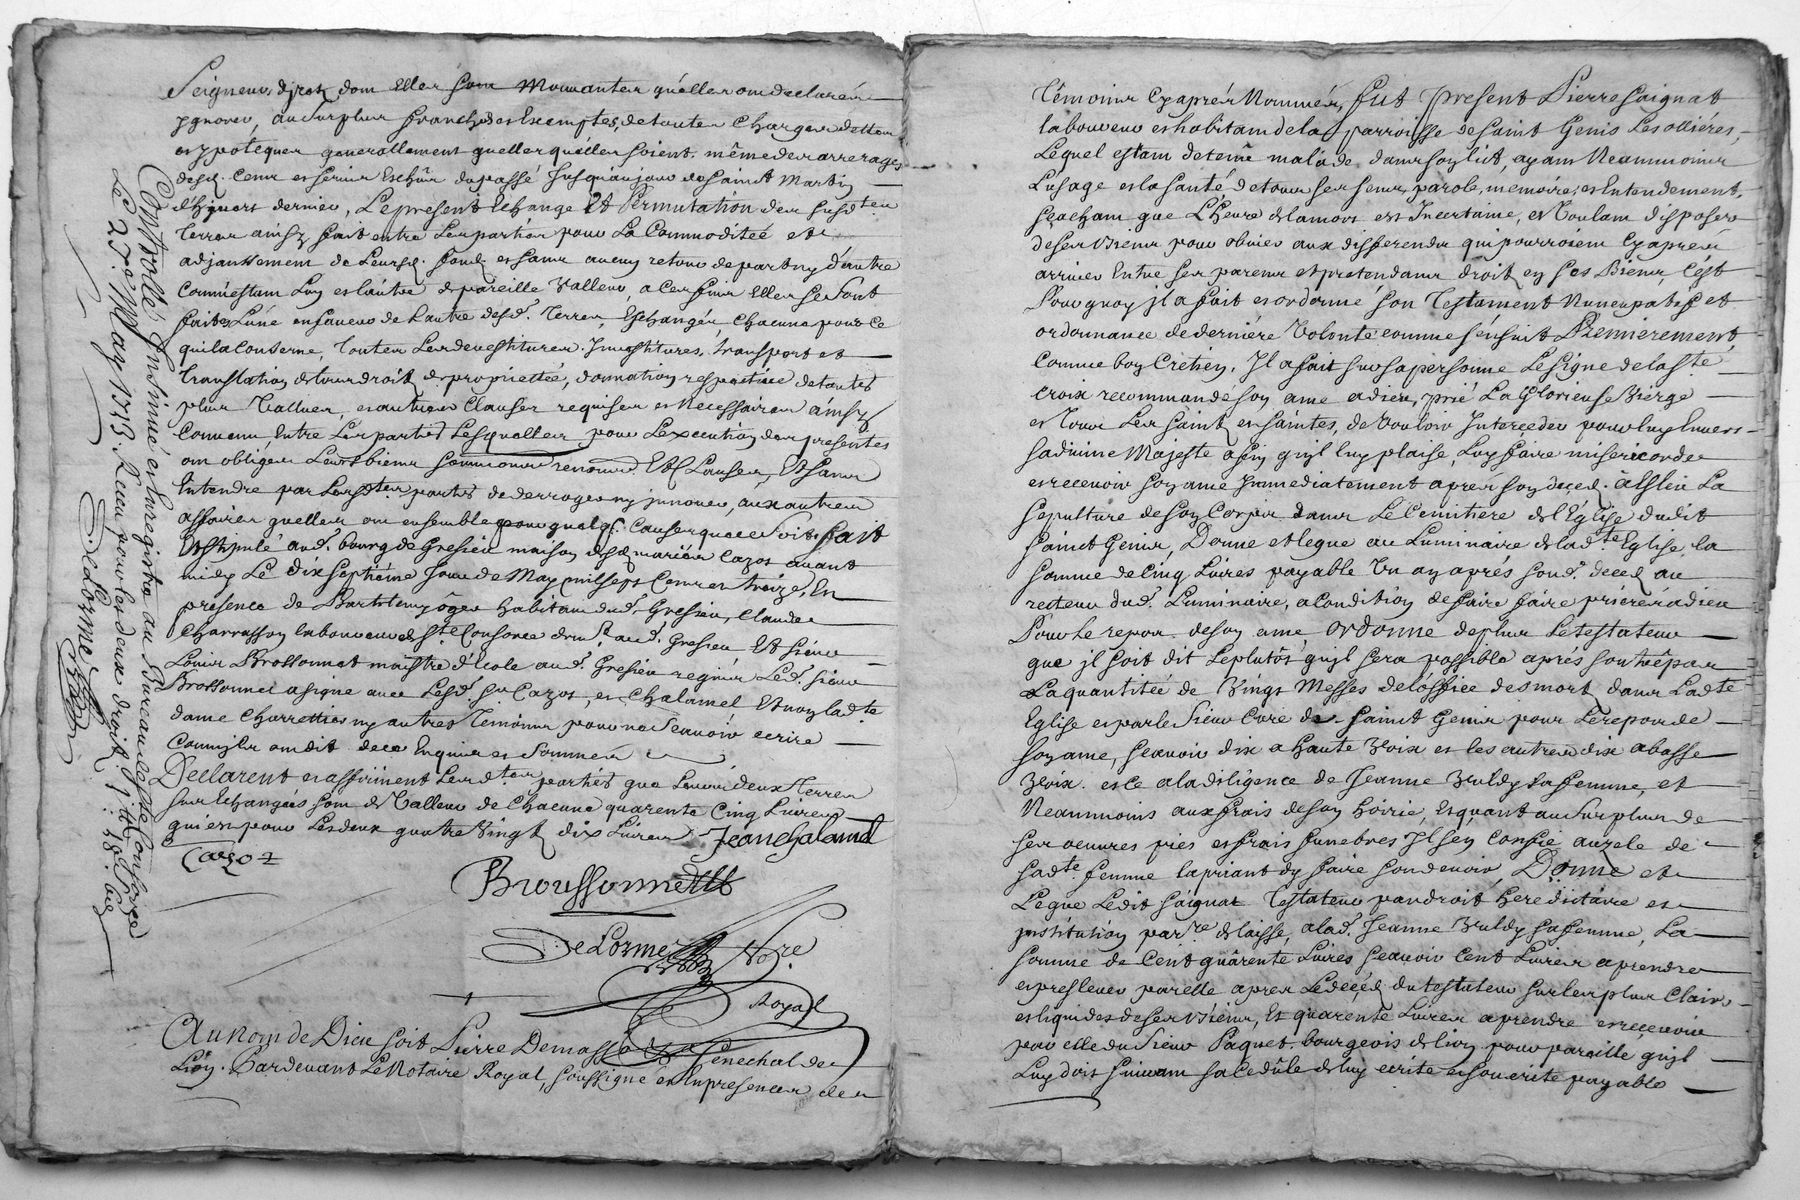 Seigneurs directz dom Elles sont Mouvantes quelles ont declarées
ygnorer, au Surplus franches et Exemptes, de toutes Charges dettes
et ypoteques generallement quelles quelles soient. même des arrerages
desd. Cens et servis Eschûs du passé Jusqu'au jour de sainct Martin
d'hyvers dernier, Le present Echange Et Permutation des susd.tes
Terres ainsy fait entre Les parties pour La Commoditeé et
adjansement de Leursd. fondz et sans aucun retour de part ny d'autre
Comme estans L'un et l'autre de pareille valleur, a ces fins Elles se sont
faites L'une en faveur de L'autre desd. Terres, Eschangées, Chacune pour ce
qui la Conserne, Toutes Les devestitures. Jnvestitures. transport et
translation de tous droitz de proprietteé, donnation respective de toutes
plus Vallues, et autres Clauses requises et Necessaires ainsy
Convenu, Entre Les parties Lesquelles pour L'execution des presentes
ont obligées Leurs biens soumissions renon.ons Et Clauses, Et sans
Entendre par Lesd.tes parties de derroger ny jnnover, aux autres
affaires quelles ont ensemble pour quelq. Causes que ce soit. fait
Et stipulé aud. bourg de Gresieu maison desd. mariés Cazot avant
midy Le dix septième Jour de May mil sept Cent et treize, En
presence de Barthelemy ôger habitam dud. Gresieu, Claude
Charrasson laboureur de S.te Consorce aud. Gresieu Et sieur
Louis Brossonnet maistre d'Ecole aud. Gresieu requis Led. sieur
Brossonnet a signe avec Lesd. Sr Cazot, et Chalamel Et non lad.te
dame Charrettier ny autres Témoins pour ne Scavoir ecrire
Comme jls ont dit de ce Enquis et Sommés
Declarent et affirment Lesd.tes parties que Lesd. deux Terres
sus Echangées sont de Valleur de Chacune quarente Cinq Livres
qui est pour Les deux quatre Vingt dix Livres Jean Chalamel
Cazot
Broussonnet
DeLorme No.re
Royal
Controllé, Jnsinué et Enregistré au Bureau de Ste Consorce
Le 27e May 1713. Reçu pour les deux droits
DeLorme
Au Nom de Dieu soit Pierre Demasso Senechal de
Lion. Pardevant Le Notaire Royal, soussigné et En presence des
Témoins Cy aprés Nommés, fut present Pierre Saignat
laboureur et habitam de la parroisse de Saint Genis Les ollières,
Lequel estam detenu malade dans son lict, ayam Neammoins
L'usage et la santé de tous ses sens, parole, memoire, et Entendement.
Sçacham que L'heure de la mort est Jncertaine, et Voulam disposer
de ses Biens pour obvier aux differends qui pourroiem Cy aprés
arriver Entre ses parens et pretendans droit en ses Biens, C'est
Pourquoy jl a fait et ordonné son Testament Nuncupatif et
ordonnance de derniére Volonté comme s'ensuit Premierement,
Comme bon Cretien. Jl a fait sur sa personne Le signe de la s.te
croix recommande son ame a dieu, prié La Glorieuse Vierge
et Tous Les saintz et saintes, de Vouloir Jnterceder pour luy Envers
sa divine Majeste afin qu'jl luy plaise, Luy faire misericorde
et recevoir son ame Jmmediatement apres son decedz. a Esleu La
sepulture de son Corps dans Le Cemitiere de l'Église dudit
sainct Genis, Donne et legue au Luminaire de lad.te Eglise, la
somme de Cinq Livres payable Un an aprés sond. decedz au
recteur dud. Luminaire, a Condition de faire faire prieres a dieu
Pour Le repos. de son ame, ordonne de plus Le testateur
que jl soit dit Le plutôt qu'jl sera possible aprés son trêpas
La quantiteé de Vingt Messes de l'office des mort, dans Ladte
Eglise et par le Sieur Curé de. Sainct Genis pour Le repos de
son ame, scavoir dix a haute Voix et les autres dix a basse
Voix. et ce a la diligence de Jeanne Vuldy sa femme, et
Neanmoins aux frais de son hoirie, Et quant au surplus de
ses oeuvres pies et frais funebres Jl s'en confie au zele de
sadte femme la priant d'y faire son devoir, Donne et
Legue Ledit Saignat Testateur par droit hereditaire et
jnstitution par.re delaisse, a lad. Jeanne Vuldy sa femme, La
somme de Cent quârente Livres scavoir Cent Livres a prendre
et preslever par elle apres Le decedz du testateur sur les plus Clairs
et liquides de ses Biens, Et quarente Livres a prendre et recevoir
par elle du sieur Paquet. bourgeois de lion pour pareille, qu'jl
Luy doit suivam sa cedûle de luy ecrite et souscrite payable